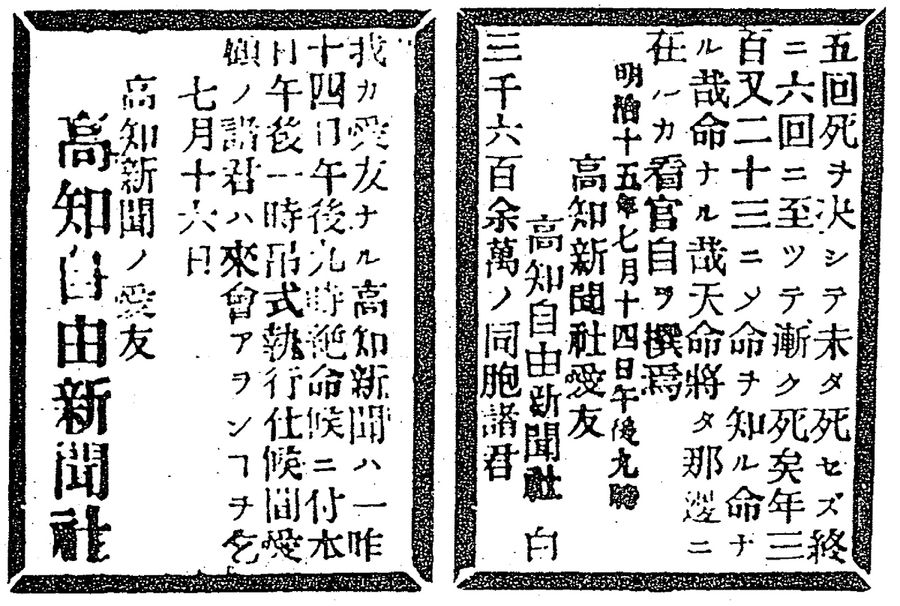 五回死ヲ决シテ未タ死セズ終
ニ六回ニ至ツテ漸ク死矣年三
百又二十三ニメ命ヲ知ル命ナ
ル哉命ナル哉天命將タ那邊ニ
在ルカ看官自ヲ撰焉
明治十五年七月十四日午後九時
高知新聞社愛友
高知自由新聞社 白
三千六百余萬ノ同胞諸君
我カ愛友ナル高知新聞ハ一昨
十四日午後九時絶命候ニ付本
日午後一時吊式執行仕候間愛
顧ノ諸君ハ來會アランヿヲ乞
七月十六日
高知新聞ノ愛友
高知自由新聞社